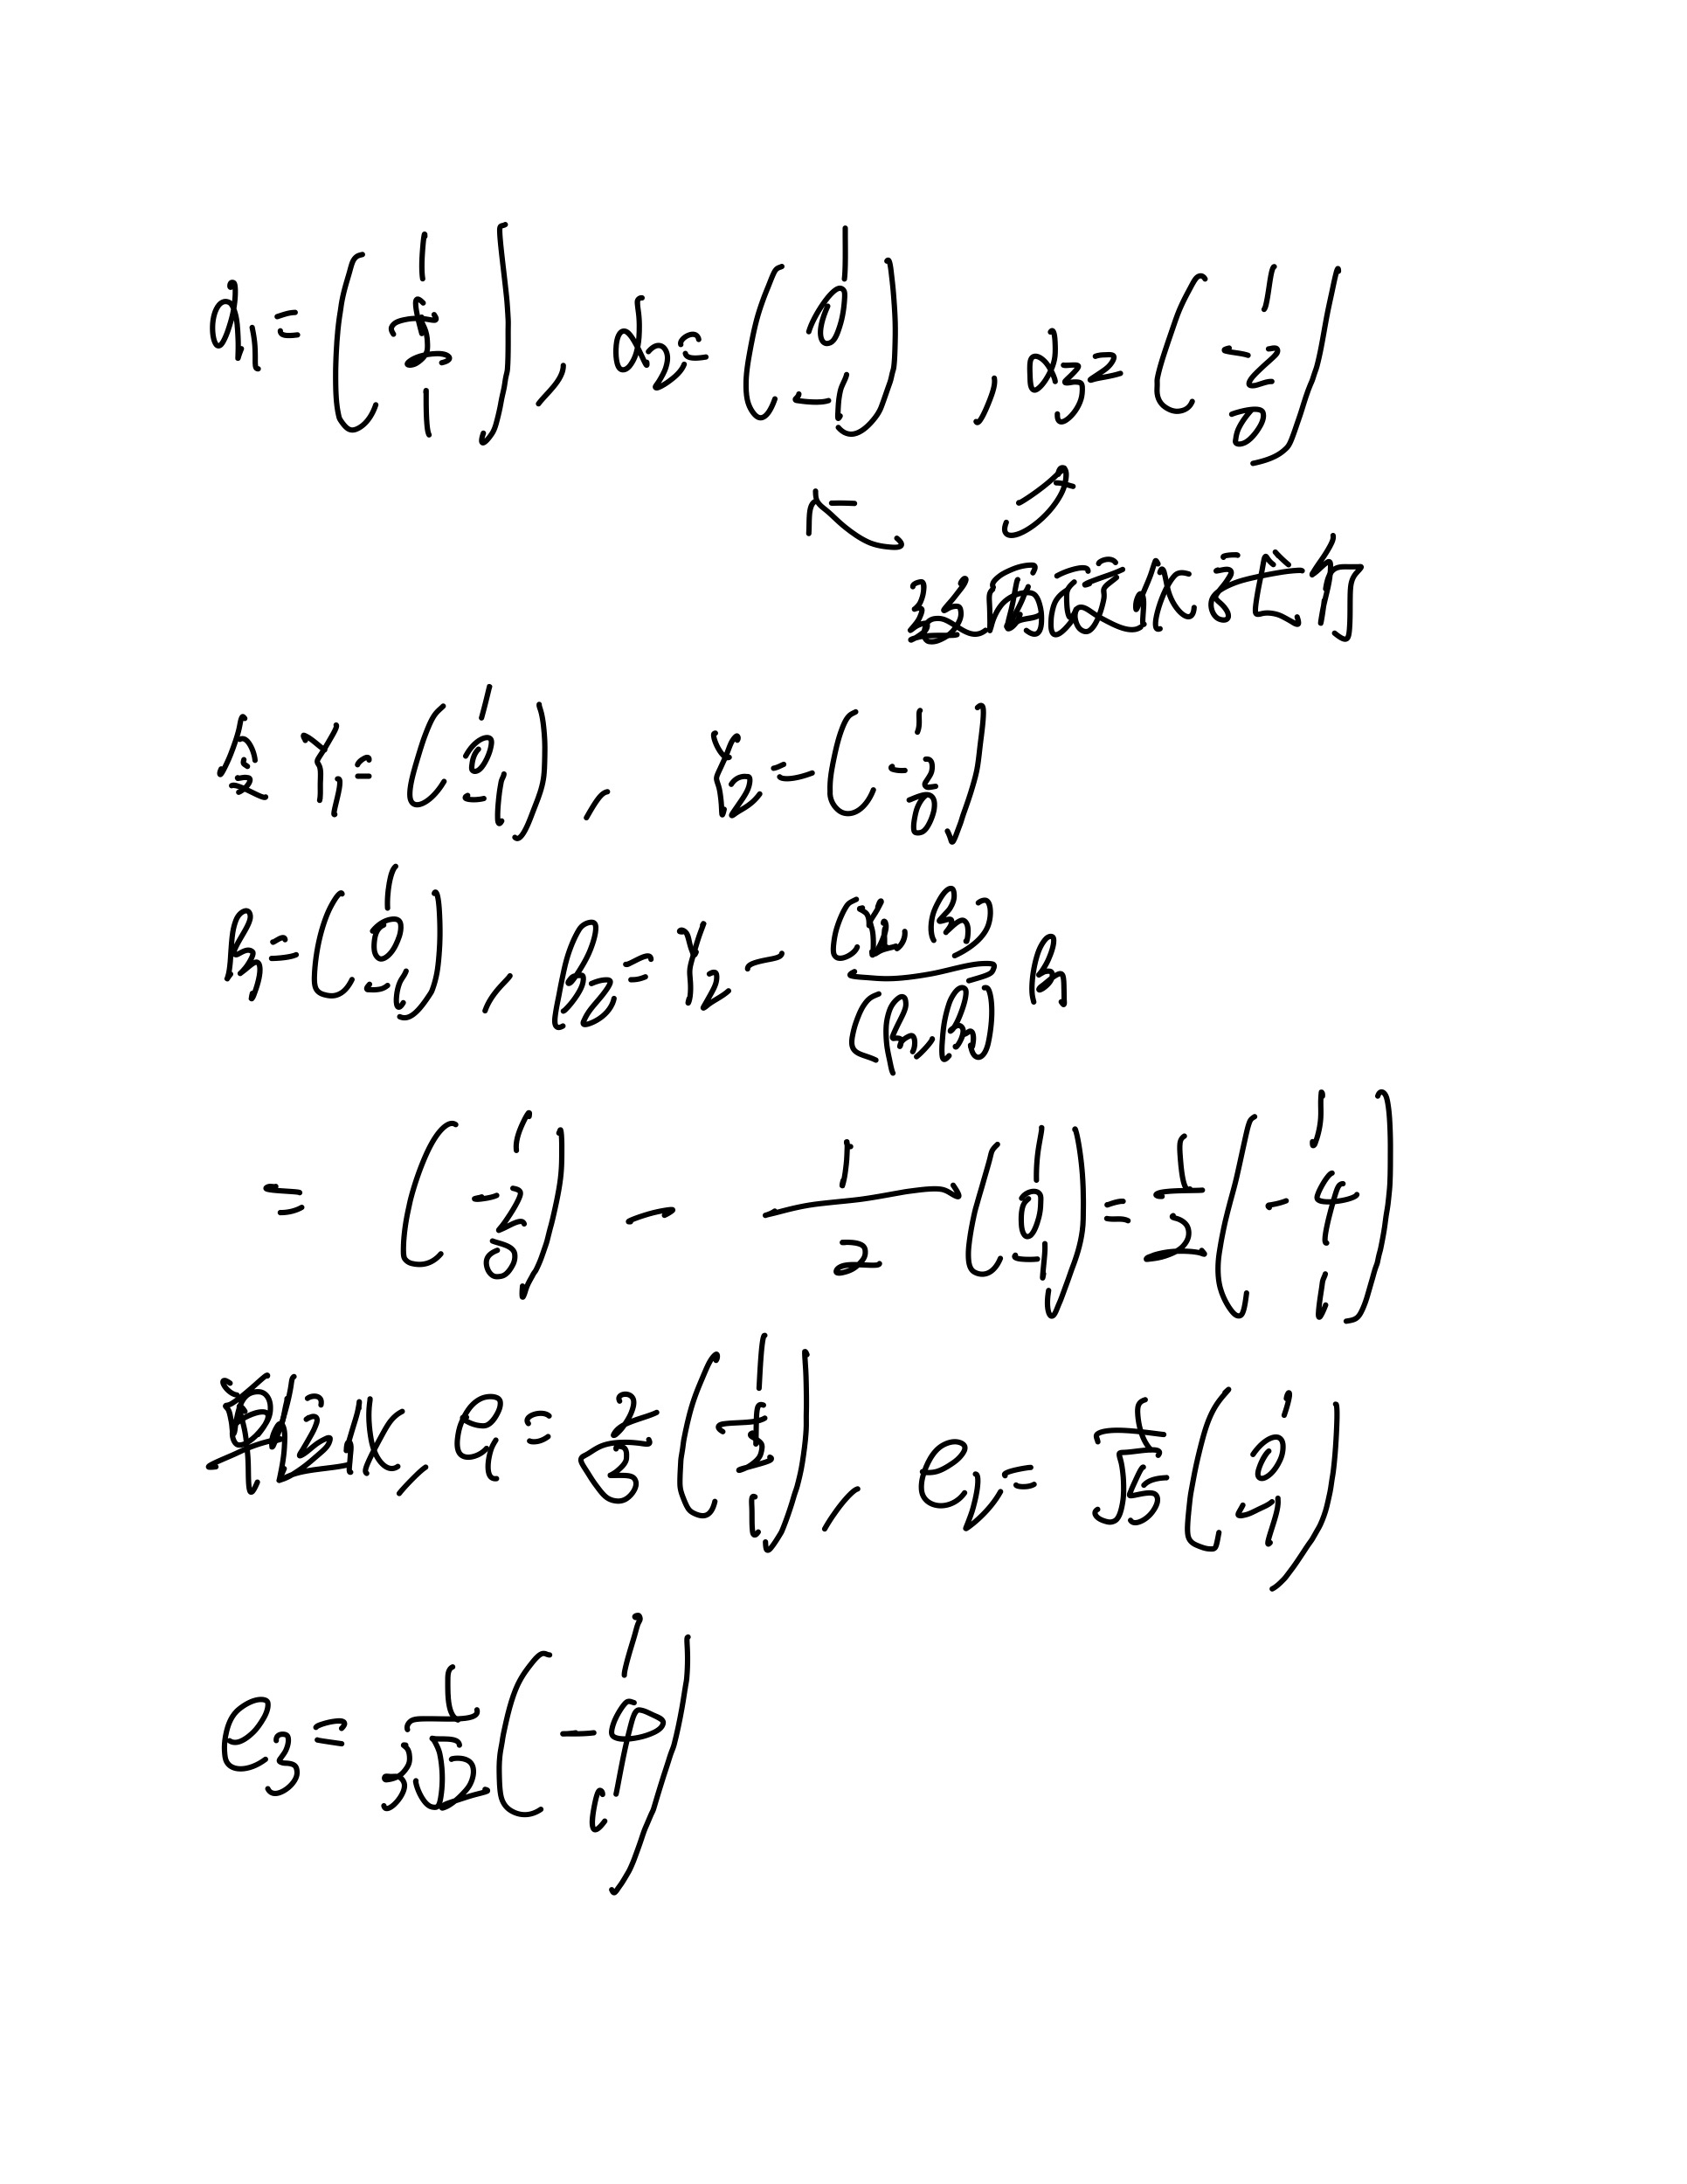 α₁ = (1, 1/2, 1), α₂ = (1, 0, -1), α₃ = (1, -2, 0)
这两边做正交
令 γ₁ = (1, 0, -1), γ₂ = (1, -2, 0)
β₁ = (1, 0, -1), β₂ = γ₂ - (γ₂, β₁)/(β₁, β₁) β₁
= (1, -2, 0) - 1/2 (1, 0, -1) = 1/2 (1, -4, 1)
单位化, e = 2/3 (1, 1/2, 1), e₂ = 1/√2 (1, 0, -1)
e₃ = 1/3√2 (1, -4, 1)